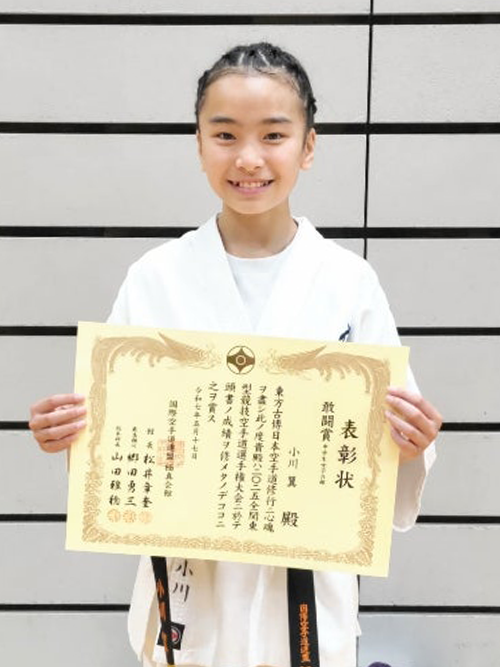 表彰状
敢闘賞
小川翼 殿
東方古傳日本空手道修行ニ心魂
ヲ盡シ此ノ度貴殿ハ二〇二五全関東
型競技空手道選手権大会ニ於テ
頭書ノ成績ヲ修メタノデココニ
之ヲ賞ス
令和七年五月十七日
国際空手道連盟極真会館
館長 松井章奎
郷田勇三
山田雅稔
小川
国際空手道連盟